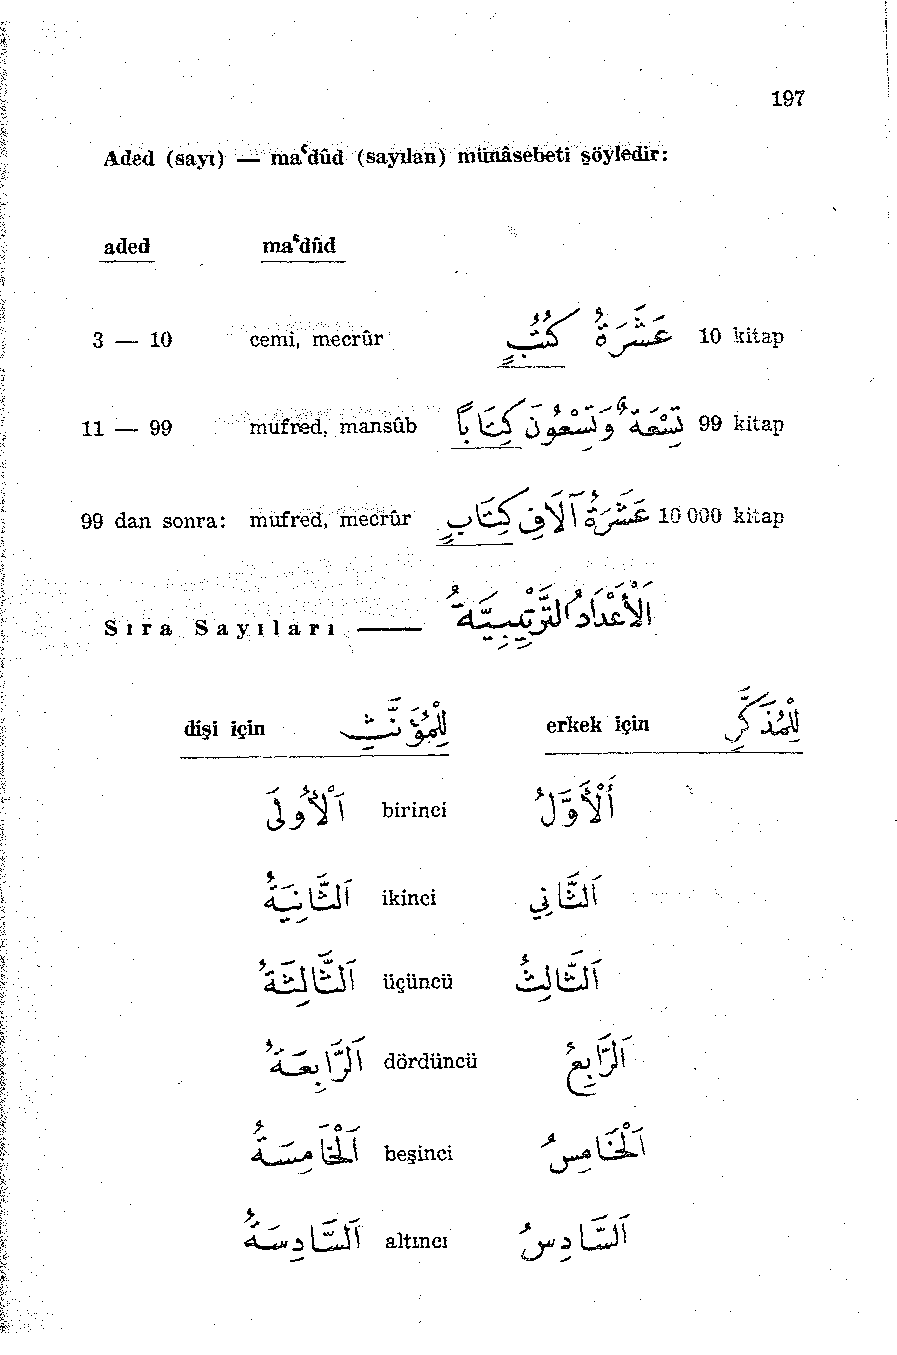 197
Aded (sayı) — maʿdûd (sayılan) münâsebeti şöyledir:
aded maʿdûd
3 — 10 cemi, mecrûr عَشَرَةُ كُتُبٍ 10 kitap
11 — 99 mufred, mansûb تِسْعَةٌ وَتِسْعُونَ كِتَابًا 99 kitap
99 dan sonra: mufred, mecrûr عَشَرَةُ آلَافِ كِتَابٍ 10 000 kitap
Sıra Sayıları — اَلْأَعْدَادُ التَّرْتِيبِيَّةُ
dişi için لِلْمُؤَنَّثِ erkek için لِلْمُذَكَّرِ
اَلْأُولَى birinci أَلْأَوَّلُ
اَلثَّانِيَةُ ikinci اَلثَّانِي
اَلثَّالِثَةُ üçüncü اَلثَّالِثُ
اَلرَّابِعَةُ dördüncü اَلرَّابِعُ
اَلْخَامِسَةُ beşinci اَلْخَامِسُ
اَلسَّادِسَةُ altıncı اَلسَّادِسُ